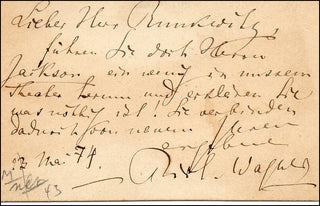 Lieber Herr Runkwitz,
führen Sie doch Herrn
Jackson ein wenig in unserem
Theater herum und erklären Sie
was nöthig ist. Sie verbinden
dadurch von neuem Ihren
ergebenen
12 Mai 74. Rich. Wagner
43